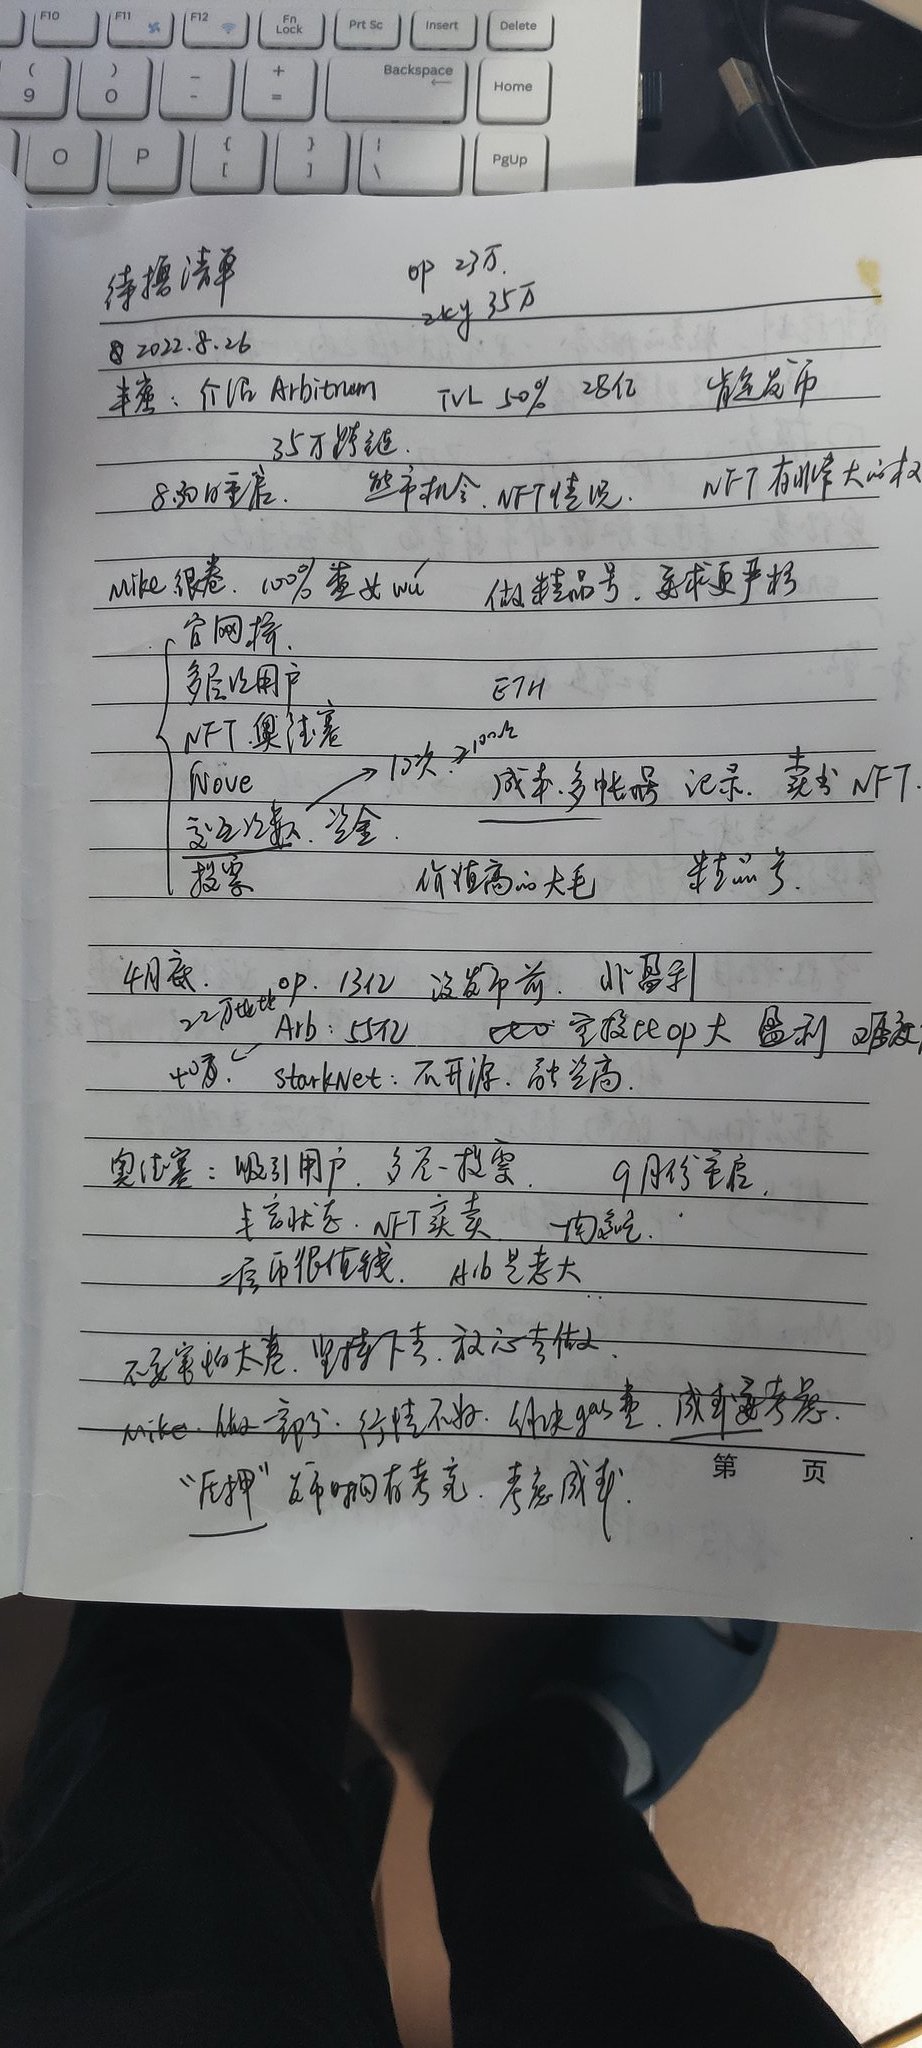 F10 F11 F12 Fn Lock Prt Sc Insert Delete
( 9 ) 0 _ - + = Backspace Home
O P { [ } ] | \ PgUp
待撸清单 op 23万.
zky 35万
2022.8.26
丰密: 介绍 Arbitrum TVL 50% 28亿 肯定发币
35万跨链.
8月30日重启. 熊市机会. NFT情况. NFT有非常大的权
Mike很卷. 100%查女wu 做精品号. 要求更严格
官网桥.
多层次用户 ETH
NFT 奥德赛
Nove → 10次.
成本.多帐号 记录. 卖出 NFT.
交互次数. 资金.
投票 价值高的大毛 精品号.
4月底. op. 13亿 没发币前. 非盈利
22万地址 Arb: 55亿 空投比op大 盈利
40万. StarkNet: 不开源. 融资高.
奥德赛: 吸引用户. 多层一投票. 9月份重启.
NFT买卖
二层币很值钱. Arb是老大
不要害怕太卷. 坚持下去. 放心去做.
Mike. 做一部分. 行情不好. 解决gas费. 成本要考虑.
第 页
“质押” 发币时间有考究. 考虑成本.